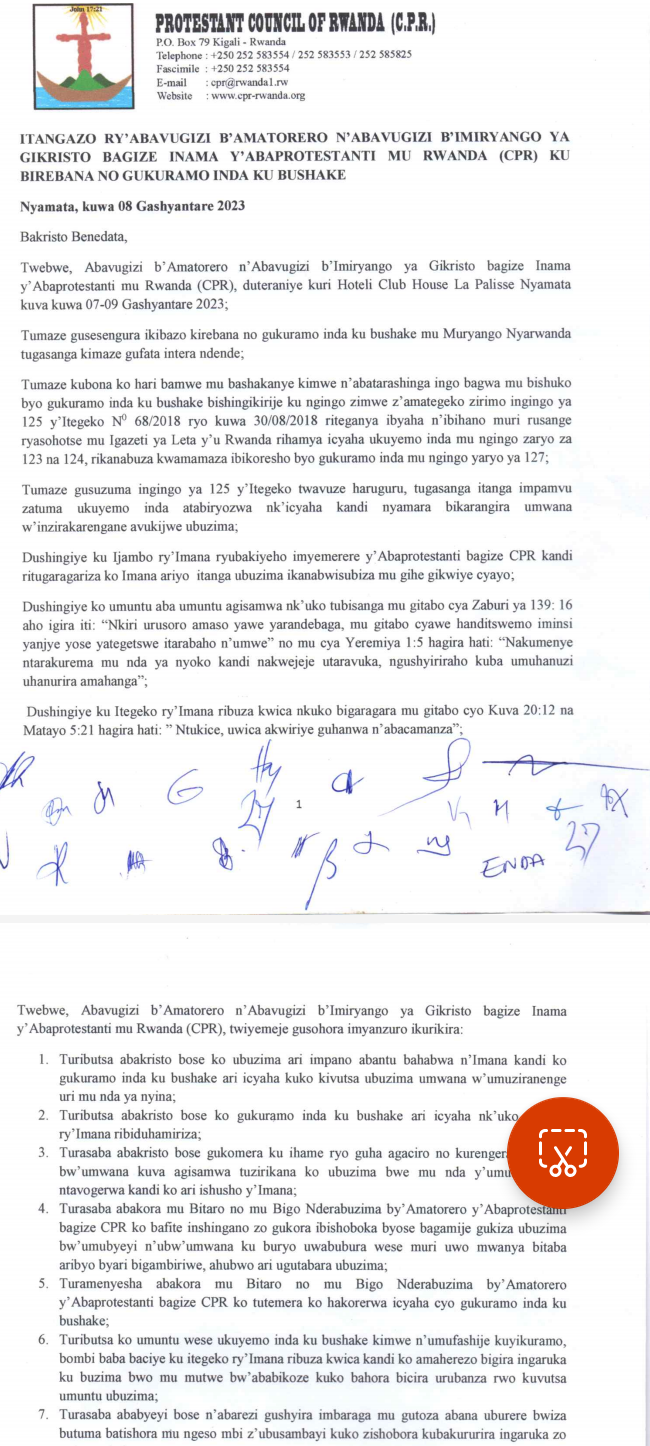 John 17:21
PROTESTANT COUNCIL OF RWANDA (C.P.R.)
P.O. Box 79 Kigali - Rwanda
Telephone : +250 252 583554 / 252 583553 / 252 585825
Fascimile : +250 252 583554
E-mail : cpr@rwanda1.rw
Website : www.cpr-rwanda.org
ITANGAZO RY’ABAVUGIZI B’AMATORERO N’ABAVUGIZI B’IMIRYANGO YA
GIKRISTO BAGIZE INAMA Y’ABAPROTESTANTI MU RWANDA (CPR) KU
BIREBANA NO GUKURAMO INDA KU BUSHAKE
Nyamata, kuwa 08 Gashyantare 2023
Bakristo Benedata,
Twebwe, Abavugizi b’Amatorero n’Abavugizi b’Imiryango ya Gikristo bagize Inama
y’Abaprotestanti mu Rwanda (CPR), duteraniye kuri Hoteli Club House La Palisse Nyamata
kuva kuwa 07-09 Gashyantare 2023;
Tumaze gusesengura ikibazo kirebana no gukuramo inda ku bushake mu Muryango Nyarwanda
tugasanga kimaze gufata intera ndende;
Tumaze kubona ko hari bamwe mu bashakanye kimwe n’abatarashinga ingo bagwa mu bishuko
byo gukuramo inda ku bushake bishingikirije ku ngingo zimwe z’amategeko zirimo ingingo ya
125 y’Itegeko N⁰ 68/2018 ryo kuwa 30/08/2018 riteganya ibyaha n’ibihano muri rusange
ryasohotse mu Igazeti ya Leta y’u Rwanda rihamya icyaha ukuyemo inda mu ngingo zaryo za
123 na 124, rikanabuza kwamamaza ibikoresho byo gukuramo inda mu ngingo yaryo ya 127;
Tumaze gusuzuma ingingo ya 125 y’Itegeko twavuze haruguru, tugasanga itanga impamvu
zatuma ukuyemo inda atabiryozwa nk’icyaha kandi nyamara bikarangira umwana
w’inzirakarengane avukijwe ubuzima;
Dushingiye ku Ijambo ry’Imana ryubakiyeho imyemerere y’Abaprotestanti bagize CPR kandi
ritugaragariza ko Imana ariyo itanga ubuzima ikanabwisubiza mu gihe gikwiye cyayo;
Dushingiye ko umuntu aba umuntu agisamwa nk’uko tubisanga mu gitabo cya Zaburi ya 139: 16
aho igira iti: “Nkiri urusoro amaso yawe yarandebaga, mu gitabo cyawe handitswemo iminsi
yanjye yose yategetswe itarabaho n’umwe” no mu cya Yeremiya 1:5 hagira hati: “Nakumenye
ntarakurema mu nda ya nyoko kandi nakwejeje utaravuka, ngushyiriraho kuba umuhanuzi
uhanurira amahanga”;
Dushingiye ku Itegeko ry’Imana ribuza kwica nkuko bigaragara mu gitabo cyo Kuva 20:12 na
Matayo 5:21 hagira hati: ” Ntukice, uwica akwiriye guhanwa n’abacamanza”;
1
ENDA
Twebwe, Abavugizi b’Amatorero n’Abavugizi b’Imiryango ya Gikristo bagize Inama
y’Abaprotestanti mu Rwanda (CPR), twiyemeje gusohora imyanzuro ikurikira:
1. Tuributsa abakristo bose ko ubuzima ari impano abantu bahabwa n’Imana kandi ko
gukuramo inda ku bushake ari icyaha kuko kivutsa ubuzima umwana w’umuziranenge
uri mu nda ya nyina;
2. Tuributsa abakristo bose ko gukuramo inda ku bushake ari icyaha nk’uko
ry’Imana ribiduhamiriza;
3. Turasaba abakristo bose gukomera ku ihame ryo guha agaciro no kurengera
bw’umwana kuva agisamwa tuzirikana ko ubuzima bwe mu nda
ntavogerwa kandi ko ari ishusho y’Imana;
4. Turasaba abakora mu Bitaro no mu Bigo Nderabuzima by’Amatorero y’Abaprotestanti
bagize CPR ko bafite inshingano zo gukora ibishoboka byose bagamije gukiza ubuzima
bw’umubyeyi n’ubw’umwana ku buryo uwabubura wese muri uwo mwanya bitaba
aribyo byari bigambiriwe, ahubwo ari ugutabara ubuzima;
5. Turamenyesha abakora mu Bitaro no mu Bigo Nderabuzima by’Amatorero
y’Abaprotestanti bagize CPR ko tutemera ko hakorerwa icyaha cyo gukuramo inda ku
bushake;
6. Tuributsa ko umuntu wese ukuyemo inda ku bushake kimwe n’umufashije kuyikuramo,
bombi baba baciye ku itegeko ry’Imana ribuza kwica kandi ko amaherezo bigira ingaruka
ku buzima bwo mu mutwe bw’ababikoze kuko bahora bicira urubanza rwo kuvutsa
umuntu ubuzima;
7. Turasaba ababyeyi bose n’abarezi gushyira imbaraga mu gutoza abana uburere bwiza
butuma batishora mu ngeso mbi z’ubusambayi kuko zishobora kubakururira ingaruka zo